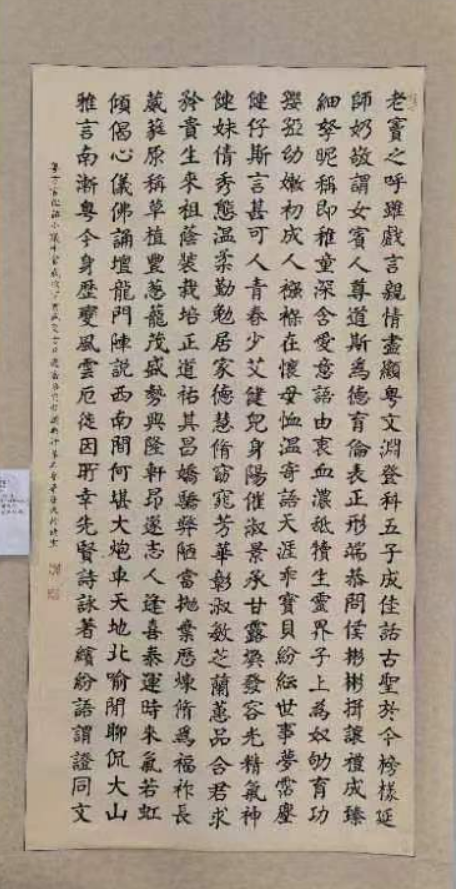 老竇之呼雖戲言親情盡顯粵文淵登科五子成佳話古聖於今榜樣延
師奶敬謂女賓人尊道斯為德育倫表正形端恭問侯彬彬揖讓禮成臻
細孥昵稱即稚童深含愛意語由衷血濃舐犢生靈界子上為奴劬育功
孾孲幼嫩初成人襁褓在懷母恤溫寄語天涯乖寶貝紛紜世事夢常塵
健仔斯言甚可人青春少艾健兒身陽催淑景承甘露煥發容光精氣神
健妹倩秀態溫柔勤勉居家德慧脩窈窕芳華彰淑敏芝蘭蕙品合君求
矜貴生來祖蔭裝栽培正道祐其昌嬌驕弊陋當拋棄歷煉脩為福祚長
葳蕤原稱草植豐蔥蘢茂盛勢興隆軒昂遂志人逢喜泰運時來氣若虹
傾偈心儀佛誦壇龍門陣說西南間何堪大炮車天地北喻閒聊侃大山
雅言南漸粵今身歷變風雲厄徙因所幸先賢詩詠著繽紛語謂證同文